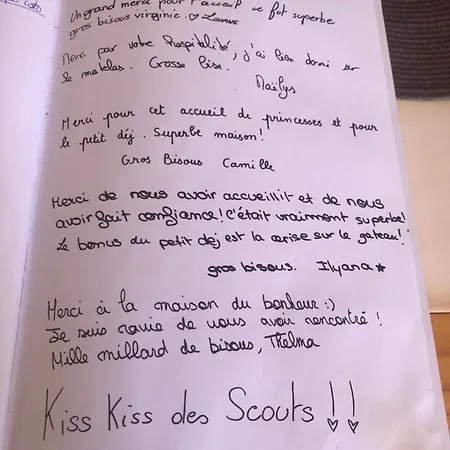 Un grand merci pour l'accueil ce fut superbe
gros bisous virginie. ♡
Merci par votre hospitalité, j'ai bien dormi sur
le matelas. Grosse bise.
Maïlys
Merci pour cet accueil de princesses et pour
le petit déj. Superbe maison!
Gros Bisous Camille
Merci de nous avoir accueillit et de nous
avoir fait confiance! C'était vraiment superbe!
Le bonus du petit dej est la cerise sur le gateau!
gros bisous. Ilyana★
Merci à la maison du bonheur :)
Je suis ravie de vous avoir rencontré !
Mille millard de bisous, Thelma
Kiss Kiss des Scouts !!